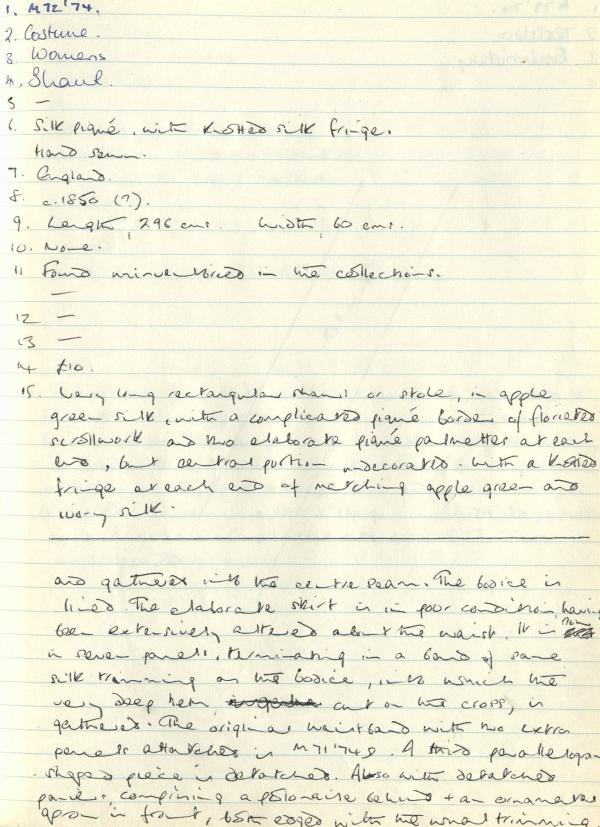 1. M72'74.
2. Costume.
3. Womens
4. Shawl.
5 —
6. Silk piqué, with knotted silk fringe.
Hand sewn.
7. England.
8. c.1850 (?).
9. Length, 296 cms. Width, 60 cms.
10. None.
11 Found uninventoried in the collections.
—
12 —
13 —
14 £10.
15. Very long rectangular shawl or stole, in apple
green silk, with a complicated piqué border of floriated
scrollwork and two elaborate piqué palmettes at each
end, but central portion undecorated. With a knotted
fringe at each end of matching apple green and
ivory silk.
and gathered into the centre seam. The bodice is
lined The elaborate skirt is in poor condition, having
been extensively altered about the waist. It is now
in seven panels, terminating in a band of same
silk trimming as the bodice, into which the
very deep hem, cut on the cross, is
gathered. The original waistband with two extra
panels attached is M71'74 A third parallelogram
shaped piece is detached. Also with detached
panels, comprising a polonaise behind + an ornamental
apron in front, both edged with the usual trimming.